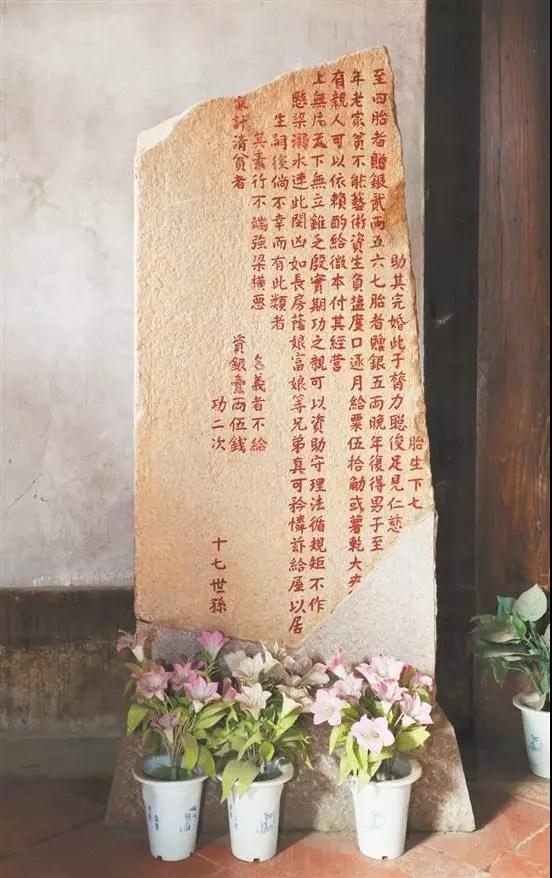 胎生下七
助其完婚此于膂力聪俊足見仁慈
至四胎者贈銀貳兩五六七胎者贈銀五兩晚年復得男子至
年老家貧不能藝術資生負度口逐月給粟伍拾觔或薯乾大
有親人可以依賴酌給微本付其經營
上無片瓦下無立錐之殷實期功之親可以資助守理法循規矩不作
懸梁溺水遭此閔凶如長房蔭娘富娘等兄弟真可矜憐茲給屋以居
生嗣後倘不幸而有此類者
其素行不端強梁橫惡 名義者不給
家計清貧者 資銀壹兩伍錢
功二次
十七世孫